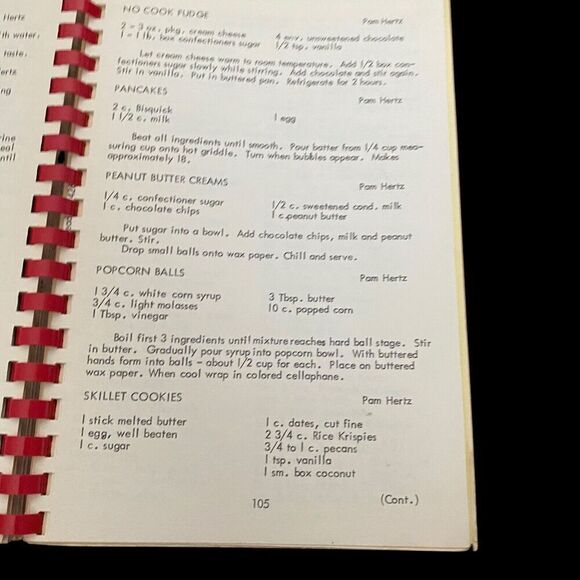 Hertz
th water.
taste.
ertz
ng
ine
eal
ntil
NO COOK FUDGE
Pam Hertz
2 - 3 oz. pkg. cream cheese 4 env. unsweetened chocolate
1 - 1 lb. box confectioners sugar 1/2 tsp. vanilla
Let cream cheese warm to room temperature. Add 1/2 box con-
fectioners sugar slowly while stirring. Add chocolate and stir again.
Stir in vanilla. Put in buttered pan. Refrigerate for 2 hours.
PANCAKES Pam Hertz
2 c. Bisquick 1 egg
1 1/2 c. milk
Beat all ingredients until smooth. Pour batter from 1/4 cup mea-
suring cup onto hot griddle. Turn when bubbles appear. Makes
approximately 18.
PEANUT BUTTER CREAMS Pam Hertz
1/4 c. confectioner sugar 1/2 c. sweetened cond. milk
1 c. chocolate chips 1 c.peanut butter
Put sugar into a bowl. Add chocolate chips, milk and peanut
butter. Stir.
Drop small balls onto wax paper. Chill and serve.
POPCORN BALLS Pam Hertz
1 3/4 c. white corn syrup 3 Tbsp. butter
3/4 c. light molasses 10 c. popped corn
1 Tbsp. vinegar
Boil first 3 ingredients until mixture reaches hard ball stage. Stir
in butter. Gradually pour syrup into popcorn bowl. With buttered
hands form into balls - about 1/2 cup for each. Place on buttered
wax paper. When cool wrap in colored cellaphane.
SKILLET COOKIES Pam Hertz
1 stick melted butter 1 c. dates, cut fine
1 egg, well beaten 2 3/4 c. Rice Krispies
1 c. sugar 3/4 to 1 c. pecans
1 tsp. vanilla
1 sm. box coconut
105 (Cont.)